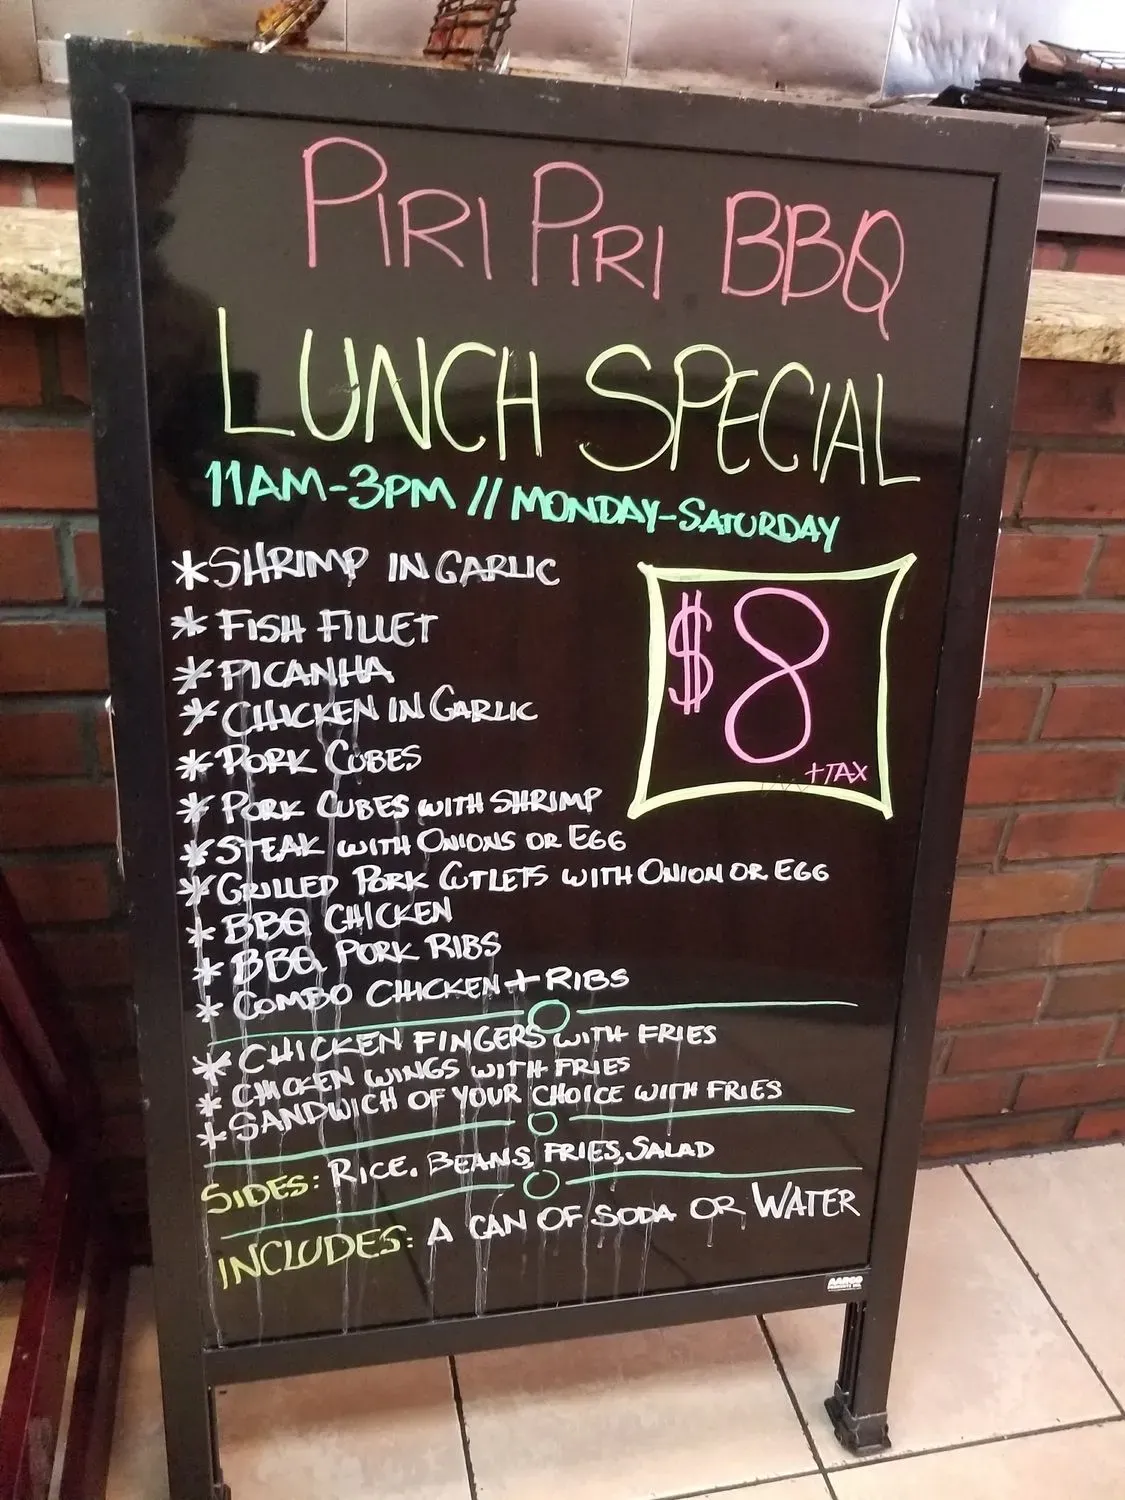 PIRI PIRI BBQ
LUNCH SPECIAL
11AM-3PM // MONDAY-SATURDAY
* SHRIMP IN GARLIC
* FISH FILLET
* PICANHA
* CHICKEN IN GARLIC
* PORK CUBES
* PORK CUBES WITH SHRIMP
* STEAK WITH ONIONS OR EGG
* GRILLED PORK CUTLETS WITH ONION OR EGG
* BBQ CHICKEN
* BBQ PORK RIBS
* COMBO CHICKEN + RIBS
$8
+TAX
* CHICKEN FINGERS WITH FRIES
* CHICKEN WINGS WITH FRIES
* SANDWICH OF YOUR CHOICE WITH FRIES
SIDES: RICE, BEANS, FRIES, SALAD
INCLUDES: A CAN OF SODA OR WATER
AARCO